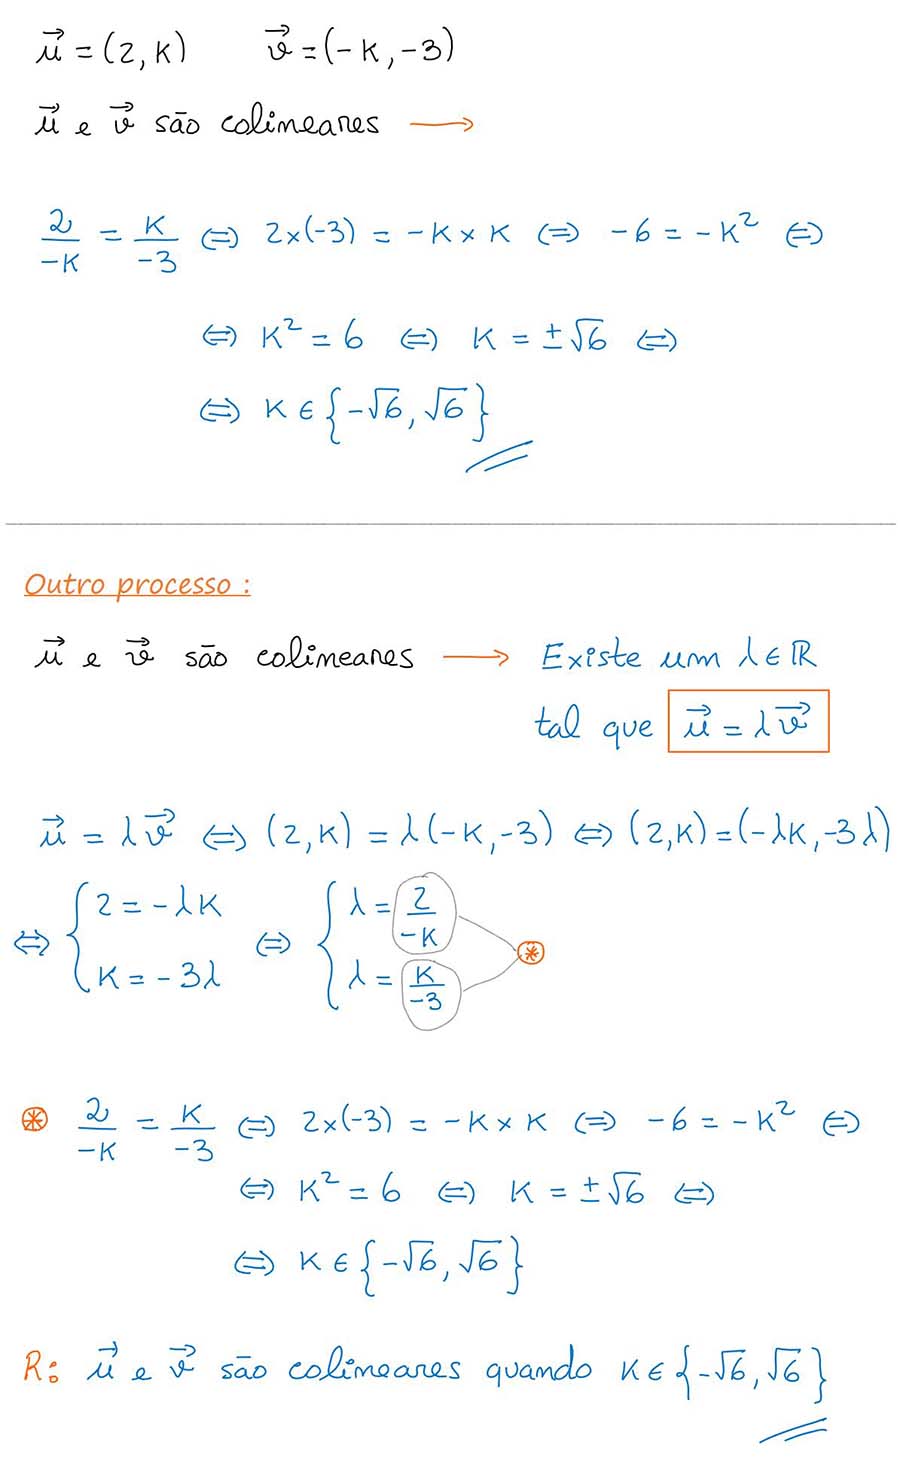 u⃗ = (2, K)   v⃗ = (-K, -3)
u⃗ e v⃗ são colineares ⟶
2/-K = K/-3 ⇔ 2×(-3) = -K × K ⇔ -6 = -K² ⇔
⇔ K² = 6 ⇔ K = ±√6 ⇔
⇔ K ∈ {-√6, √6}
Outro processo :
u⃗ e v⃗ são colineares ⟶ Existe um λ ∈ ℝ
tal que u⃗ = λv⃗
u⃗ = λv⃗ ⇔ (2, K) = λ(-K, -3) ⇔ (2, K) = (-λK, -3λ)
⇔ { 2 = -λK ⇔ { λ = 2/-K
K = -3λ   λ = K/-3 ⊛
⊛ 2/-K = K/-3 ⇔ 2×(-3) = -K × K ⇔ -6 = -K² ⇔
⇔ K² = 6 ⇔ K = ±√6 ⇔
⇔ K ∈ {-√6, √6}
R: u⃗ e v⃗ são colineares quando K ∈ {-√6, √6}